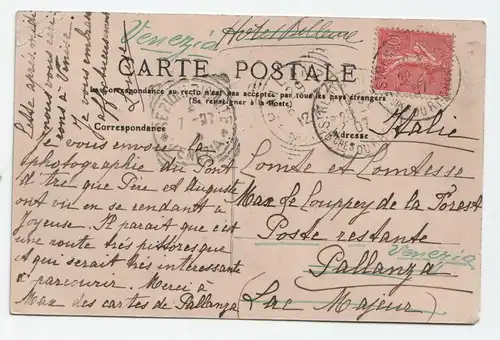 Venezia Hôtel Bellevue
CARTE POSTALE
La Correspondance au recto n'est pas acceptée par tous les pays étrangers
(Se renseigner à la Poste)
Correspondance
Adresse
Je vous envoie la
photographie du Pont
que Père et Auguste
ont vu en se rendant à
Joyeuse. Il paraît que c'est
une route très pittoresque
et qui serait très intéressante
à parcourir. Merci à
Max des cartes de Pallanza
Cette après midi
nous vous écri
rons à Venise.
Je vous embrasse
affectueusement
Italie
Comte et Comtesse
Max de Louppey de la Forest
Poste restante
Venezia
Pallanza
(Lac Majeur)